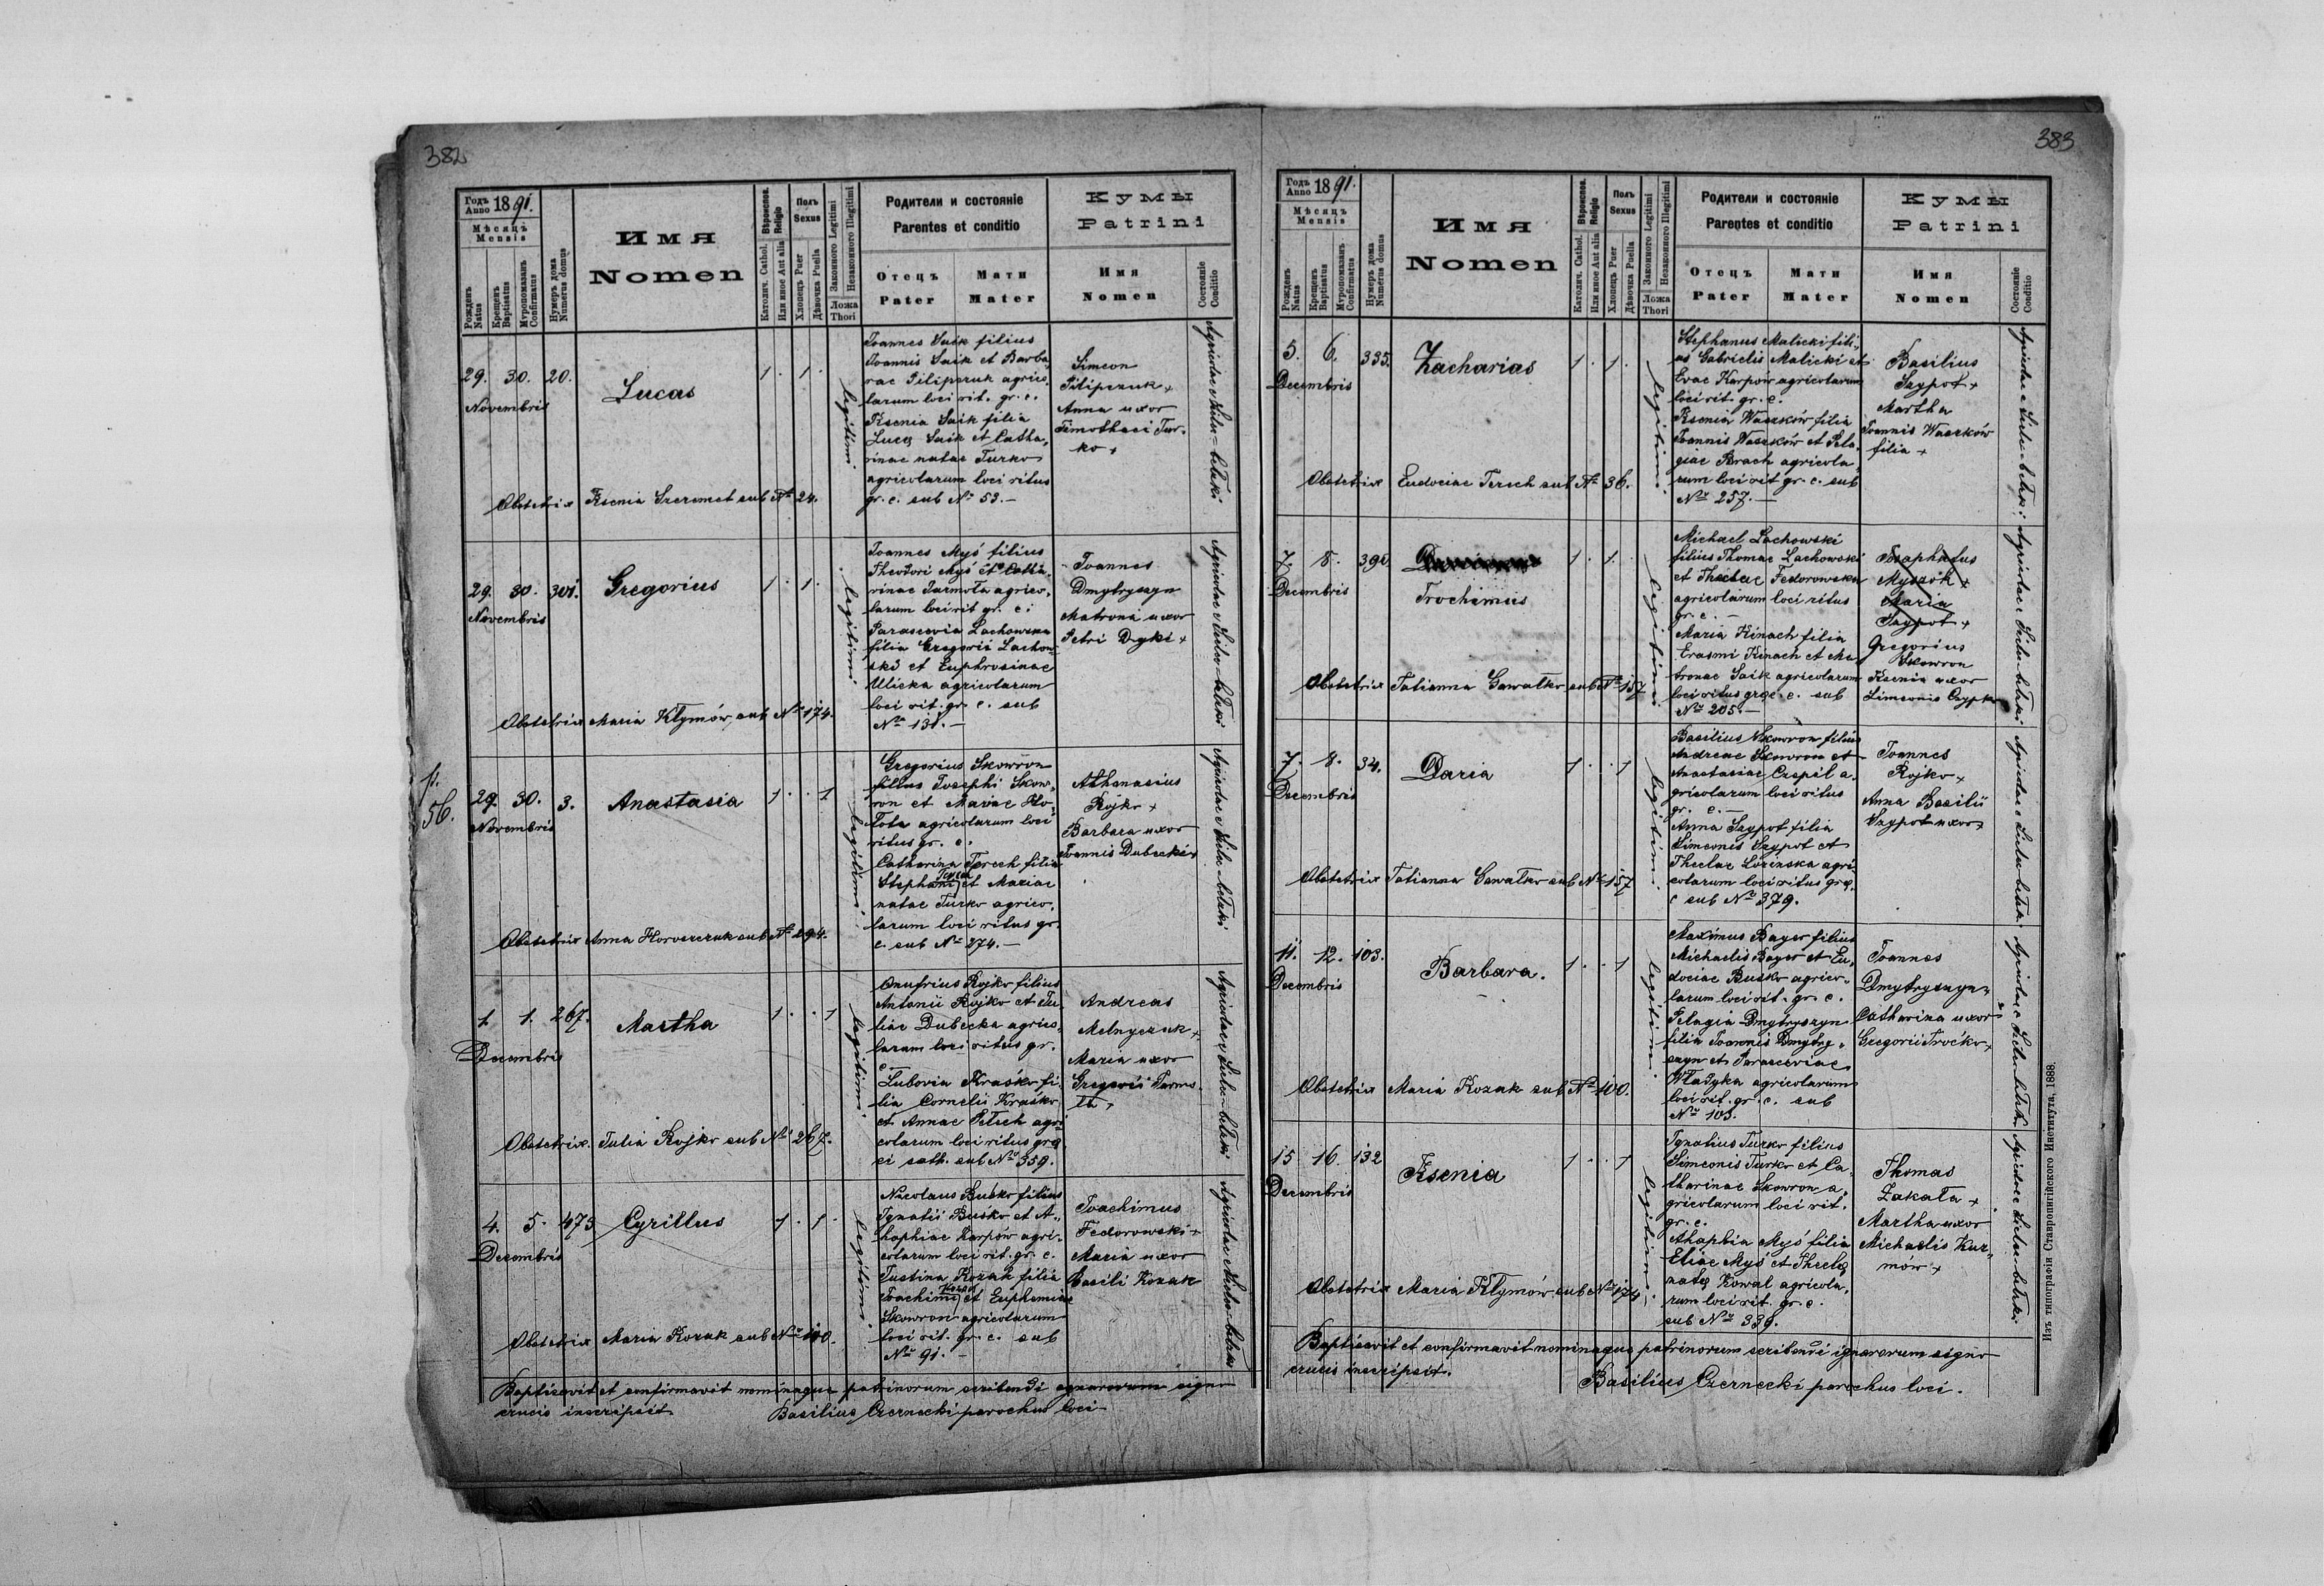 382
Годъ Anno 1891.
Мѣсяцъ
Mensis
Рожденъ Natus
Крещенъ Baptisatus
Мѵропомазанъ Confirmatus
Нумеръ дома Numerus domus
Имя
Nomen
Вѣроиспов. Religio
Католич. Cathol.
Или иное Aut alia
Полъ
Sexus
Хлопецъ Puer
Дѣвочка Puella
Законного Legitimi
Незаконного Illegitimi
Ложа
Thori
Родители и состоянiе
Parentes et conditio
Отецъ Мати
Pater Mater
Кумы
Patrini
Имя
Nomen
Состоянiе Conditio
29. 30. 20.
Novembris
Lucas
1 . 1 .
legitimi
Joannes Saik filius
Joannis Saik et Barba„
rae Pilipczuk agrico„
larum loci rit. gr. c.
Ksenia Saik filia
Lucę Saik et Catha„
rinae natae Turko
agricolarum loci ritus
gr. c. sub No 53. –
Simeon
Pilipczuk +
Anna uxor
Timothaei Tur„
ko +
Obstetrix Ksenia Szeremet sub No 24.
29. 30. 301.
Novembris
Gregorius
1 . 1 .
legitimi
Joannes Myś filius
Theodori Myś et Catha„
rinae Jarmoła agrico„
larum loci rit gr. c.
Parascevia Lachowska
filia Gregorii Lachow„
ski et Euphrosinae
Ulicka agricolarum
loci rit. gr. c. sub
No 131. –
Joannes
Dmytryszyn
Matrona uxor
Petri Dyki +
Obstetrix Maria Kłymów sub No 174.
p.
56.
29. 30. 3.
Novembris
Anastasia
1 . . 1
legitimi
Gregorius Skowron
filius Josephi Skow„
ron et Mariae
agricolarum loci
ritus gr. c.
Catharina Terech filia
Stephani Terech et Mariae
natae Turko agrico„
larum loci ritus gr.
c. sub No 274. –
Athanasius
Rojko +
Barbara uxor
Joannis Dubecki +
Obstetrix Anna Horoszczuk sub No 294.
1. 1. 267.
Decembris
Martha
1 . . 1
legitimi
Onufrius Rojko filius
Antonii Rojko et Ju„
liae Dubecka agrico„
larum loci ritus gr.
c –
Lubovia Kraśko fi„
lia Cornelii Kraśko
et Annae Petech agri„
colarum loci ritus grę
ci cath. sub No 359.
Andreas
Melnyczuk +
Maria uxor
Gregorii Jarmo„
ła +
Obstetrix. Julia Rojko sub No 267.
4. 5. 473
Decembris
Cyrillus
1 . 1 .
legitimi
Nicolaus Buśko filius
Ignatii Buśko et A„
haphiae Karpów agri„
colarum loci rit. gr. c.
Justina Kozak filia
Joachimi Kozak et Euphemiae
Skowron agricolarum
loci rit. gr. c. sub
No 91. –
Joachimus
Fedorowski +
Maria uxor
Basili Kozak
Obstetrix Maria Kozak sub No 100.
Baptisavit et confirmavit nominaque patrinorum scribendi ignarorum signo
crucis inscripsit Basilius Czernecki parochus loci
383
Годъ Anno 1891.
Мѣсяцъ
Mensis
Рожденъ Natus
Крещенъ Baptisatus
Мѵропомазанъ Confirmatus
Нумеръ дома Numerus domus
Имя
Nomen
Вѣроиспов. Religio
Католич. Cathol.
Или иное Aut alia
Полъ
Sexus
Хлопецъ Puer
Дѣвочка Puella
Законного Legitimi
Незаконного Illegitimi
Ложа
Thori
Родители и состоянiе
Parentes et conditio
Отецъ Мати
Pater Mater
Кумы
Patrini
Имя
Nomen
Состоянiе Conditio
5. 6. 335.
Decembris
Zacharias
1 . 1 .
legitimi
Stephanus Malicki fili„
us Gabrielis Malicki et
Evae Karpów agricolarum
loci rit. gr. c.
Ksenia Waszków filia
Joannis Waszków et Pela„
giae Brach agricola„
rum loci rit gr. c. sub
No 257. –
Basilius
Szypot +
Martha
Joannis Waszków
filia +
Obstetrix Eudociae Terech sub No 36.
7. 8.
Decembris
Trochimus
1 . 1 .
legitimi
Michael Lachowski
filius Thomae Lachowski
et Theclae Fedorowska
agricolarum loci ritus
gr. c. –
Maria Kinach filia
Erasmi Kinach et Ma„
tronae Saik agricolarum
loci ritus gręc. c. sub
No 205. –
Josaphatus
Myszok +
Maria
Szypot +
Gregorius
Skowron
Ksenia uxor
Simeonis
Obstetrix Tatianna Gawałko sub No 157
7. 8. 34.
Decembris
Daria
1 . . 1
legitimi
Basilius Skowron filius
Andreae Skowron et
Anastasiae Czepil a„
gricolarum loci ritus
gr. c. –
Anna Szypot filia
Simeonis Szypot et
Theclae Lozinska agri„
colarum loci ritus grę.
c sub No 379.
Joannes
Rojko +
Anna Basilii
Szypot uxor +
Obstetrix Tatianna Gawałko sub No 157
11. 12. 103.
Decembris
Barbara.
1 . . 1
legitimi
Maximus Bayer filius
Michaelis Bayer et Eu„
dociae Busko agrico„
larum loci rit. gr. c.
Pelagia Dmytryszyn
filia Joannis Dmytry„
szyn et Parasceviae
Władyka agricolarum
loci rit. gr. c. sub
No 103.
Joannes
Dmytryszyn
Catharina uxor
Gregorii Troćko +
Obstetrix Maria Kozak sub No 100.
15 16. 132
Decembris
Ksenia
1 . . 1
legitimi
Ignatius Turko filius
Simeonis Turko et Ca„
tharinae Skowron a„
gricolarum loci rit.
gr. c.
Ahaphia Myś filia
Eliae Myś et Theclę
natę Kowal agricola„
rum loci rit. gr. c.
sub No 339.
Thomas
Zakała +
Martha uxor
Michaelis
Obstetrix Maria Kłymów sub No 174
Baptisavit et confirmavit nominaque patrinorum scribendi ignarorum signo
crucis inscripsit.
Basilius Czernecki parochus loci.
Изъ типографiи Ставропигiйского Института. 1888.